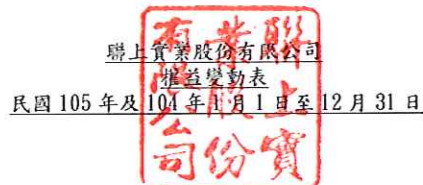 聯上實業股份有限公司
權益變動表
民國 105 年及 104 年 1 月 1 日至 12 月 31 日
聯上實業股份有限公司